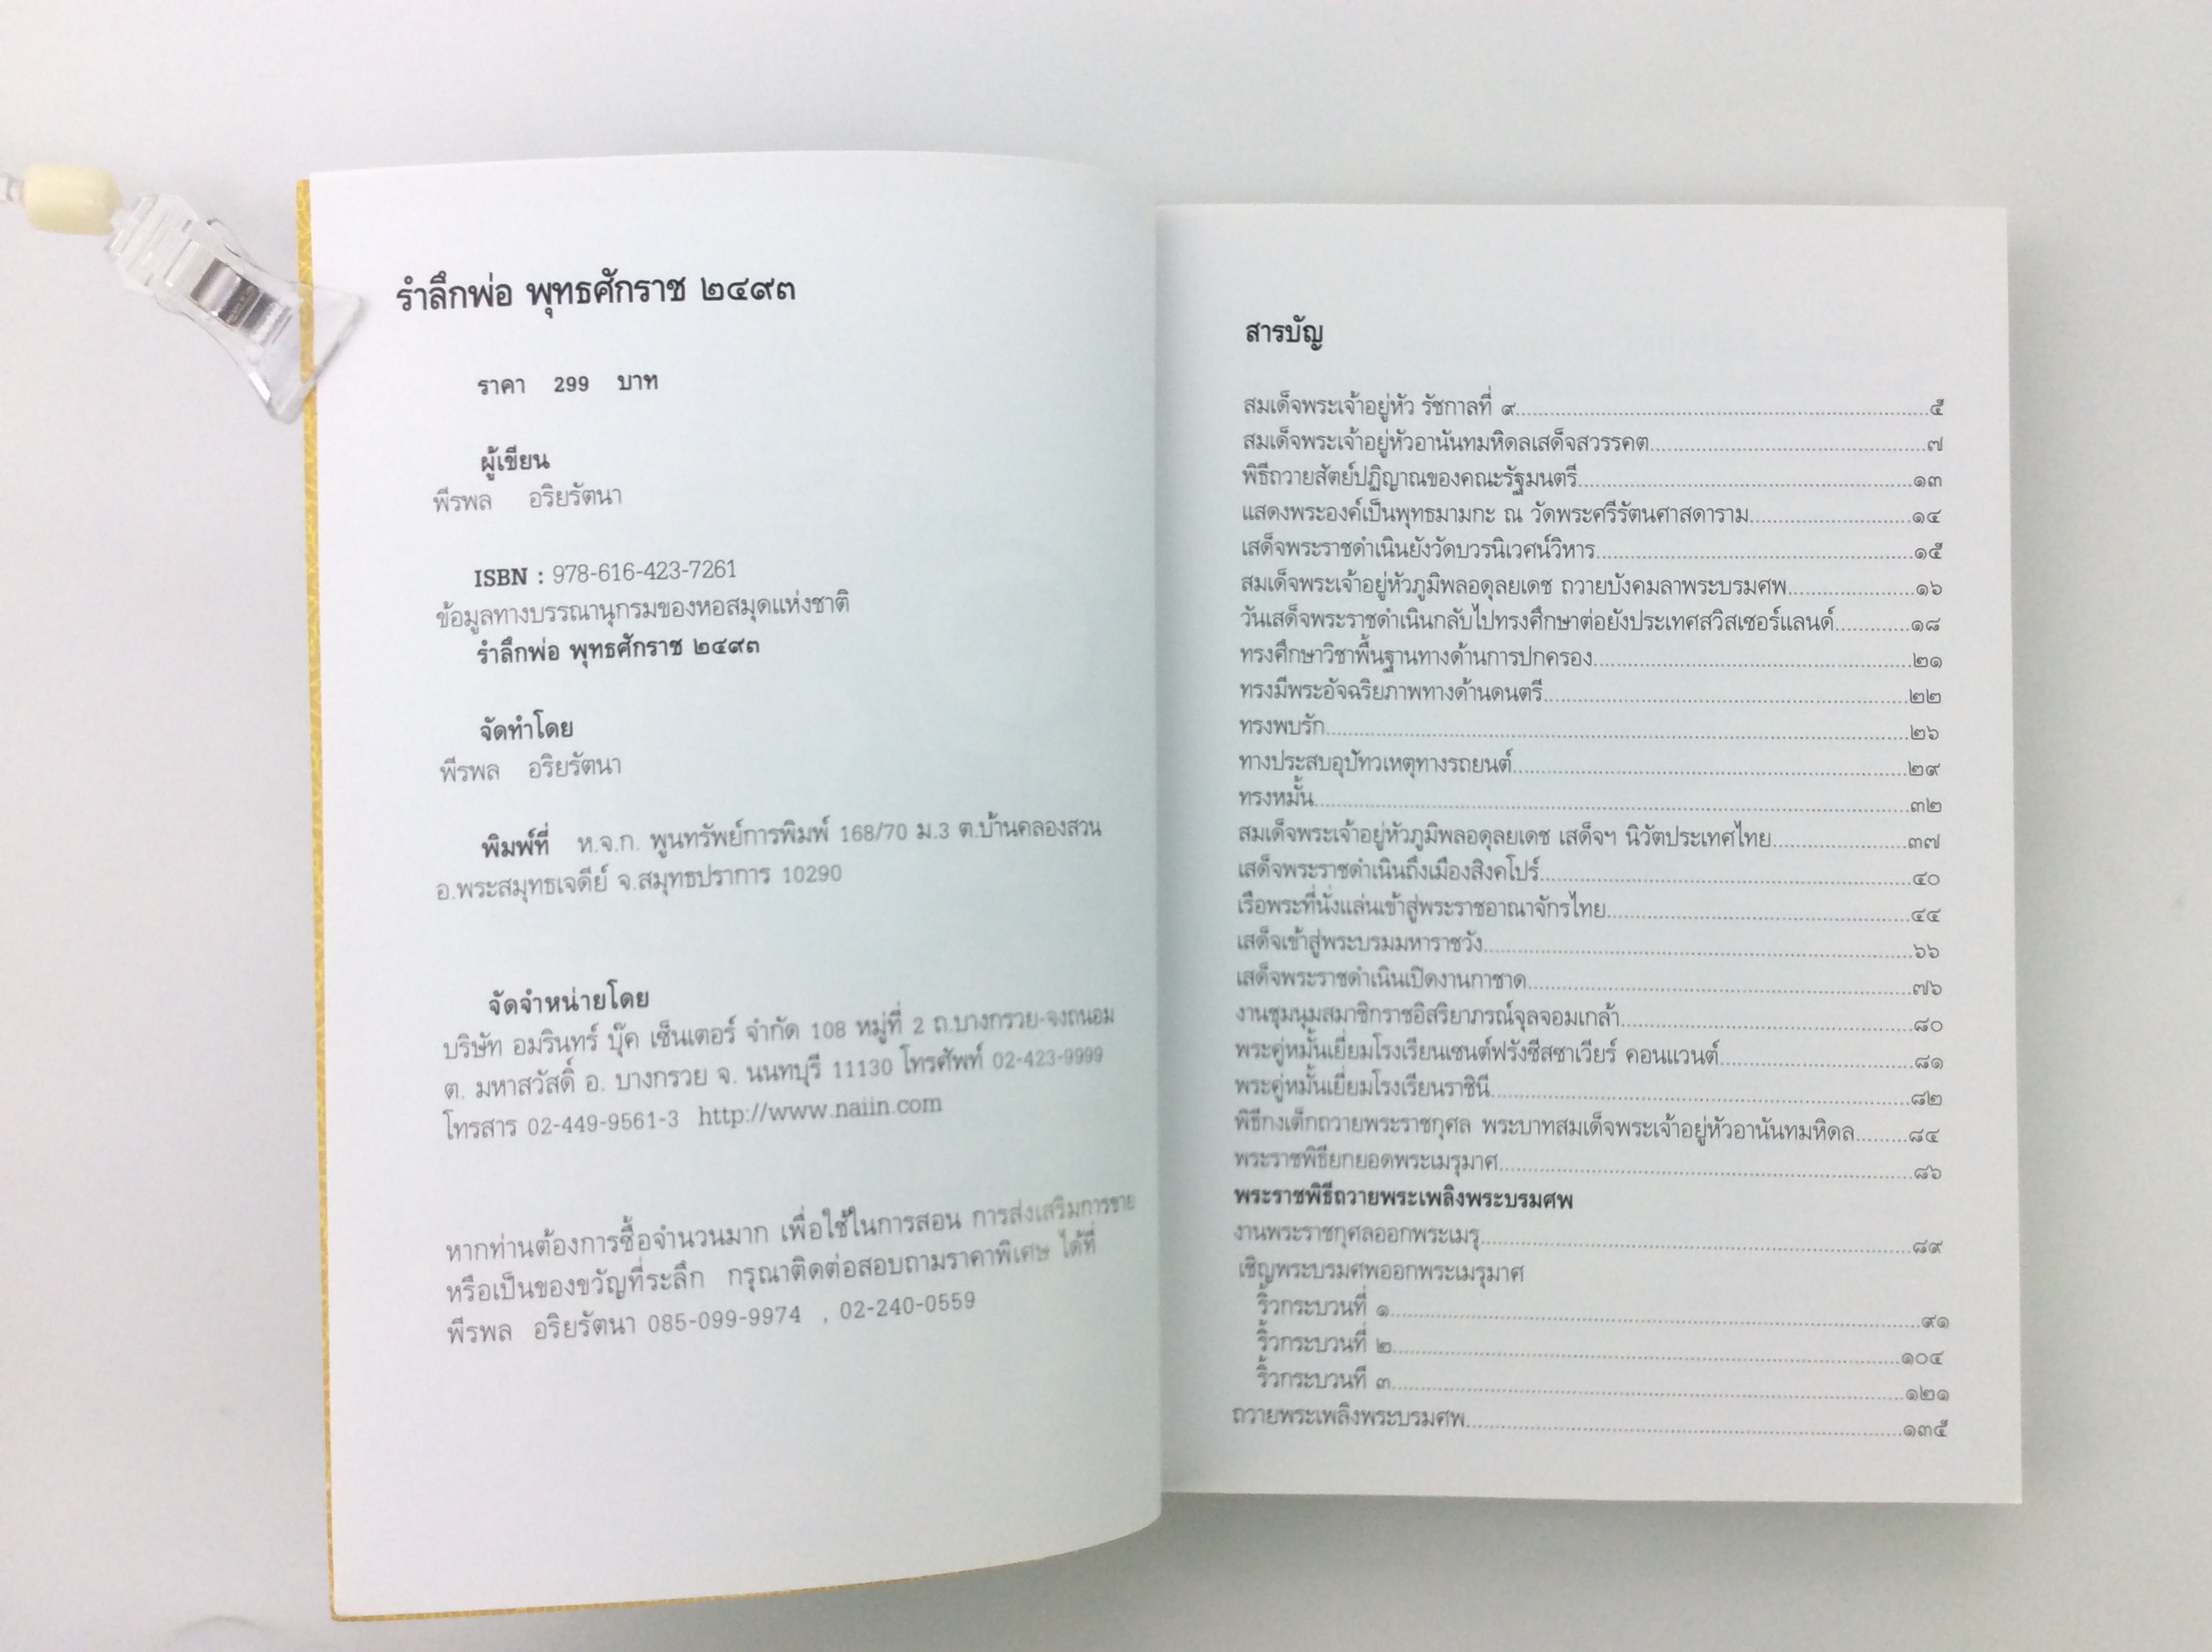 รำลึกพ่อ พุทธศักราช ๒๔๙๓
ราคา 299 บาท
ผู้เขียน
พีรพล อริยรัตนา
ISBN : 978-616-423-7261
ข้อมูลทางบรรณานุกรมของหอสมุดแห่งชาติ
รำลึกพ่อ พุทธศักราช ๒๔๙๓
จัดทำโดย
พีรพล อริยรัตนา
พิมพ์ที่ ห.จ.ก. พูนทรัพย์การพิมพ์ 168/70 ม.3 ต.บ้านคลองสวน
อ.พระสมุทธเจดีย์ จ.สมุทธปราการ 10290
จัดจำหน่ายโดย
บริษัท อมรินทร์ บุ๊ค เซ็นเตอร์ จำกัด 108 หมู่ที่ 2 ถ.บางกรวย-จงถนอม
ต. มหาสวัสดิ์ อ. บางกรวย จ. นนทบุรี 11130 โทรศัพท์ 02-423-9999
โทรสาร 02-449-9561-3 http://www.naiin.com
หากท่านต้องการซื้อจำนวนมาก เพื่อใช้ในการสอน การส่งเสริมการขาย
หรือเป็นของขวัญที่ระลึก กรุณาติดต่อสอบถามราคาพิเศษ ได้ที่
พีรพล อริยรัตนา 085-099-9974 , 02-240-0559
สารบัญ
สมเด็จพระเจ้าอยู่หัว รัชกาลที่ ๙........๕
สมเด็จพระเจ้าอยู่หัวอานันทมหิดลเสด็จสวรรคต........๗
พิธีถวายสัตย์ปฏิญาณของคณะรัฐมนตรี........๑๓
แสดงพระองค์เป็นพุทธมามกะ ณ วัดพระศรีรัตนศาสดาราม........๑๔
เสด็จพระราชดำเนินยังวัดบวรนิเวศน์วิหาร........๑๕
สมเด็จพระเจ้าอยู่หัวภูมิพลอดุลยเดช ถวายบังคมลาพระบรมศพ........๑๖
วันเสด็จพระราชดำเนินกลับไปทรงศึกษาต่อยังประเทศสวิสเซอร์แลนด์........๑๘
ทรงศึกษาวิชาพื้นฐานทางด้านการปกครอง........๒๑
ทรงมีพระอัจฉริยภาพทางด้านดนตรี........๒๒
ทรงพบรัก........๒๖
ทางประสบอุบัทวเหตุทางรถยนต์........๒๙
ทรงหมั้น........๓๒
สมเด็จพระเจ้าอยู่หัวภูมิพลอดุลยเดช เสด็จฯ นิวัตประเทศไทย........๓๗
เสด็จพระราชดำเนินถึงเมืองสิงคโปร์........๔๐
เรือพระที่นั่งแล่นเข้าสู่พระราชอาณาจักรไทย........๔๔
เสด็จเข้าสู่พระบรมมหาราชวัง........๖๖
เสด็จพระราชดำเนินเปิดงานกาชาด........๗๖
งานชุมนุมสมาชิกราชอิสริยาภรณ์จุลจอมเกล้า........๘๐
พระคู่หมั้นเยี่ยมโรงเรียนเซนต์ฟรังซีสซาเวียร์ คอนแวนต์........๘๑
พระคู่หมั้นเยี่ยมโรงเรียนราชินี........๘๒
พิธีกงเต็กถวายพระราชกุศล พระบาทสมเด็จพระเจ้าอยู่หัวอานันทมหิดล........๘๔
พระราชพิธียกยอดพระเมรุมาศ........๘๖
พระราชพิธีถวายพระเพลิงพระบรมศพ
งานพระราชกุศลออกพระเมรุ........๘๙
เชิญพระบรมศพออกพระเมรุมาศ
ริ้วกระบวนที่ ๑........๙๑
ริ้วกระบวนที่ ๒........๑๐๔
ริ้วกระบวนที่ ๓........๑๒๑
ถวายพระเพลิงพระบรมศพ........๑๓๕